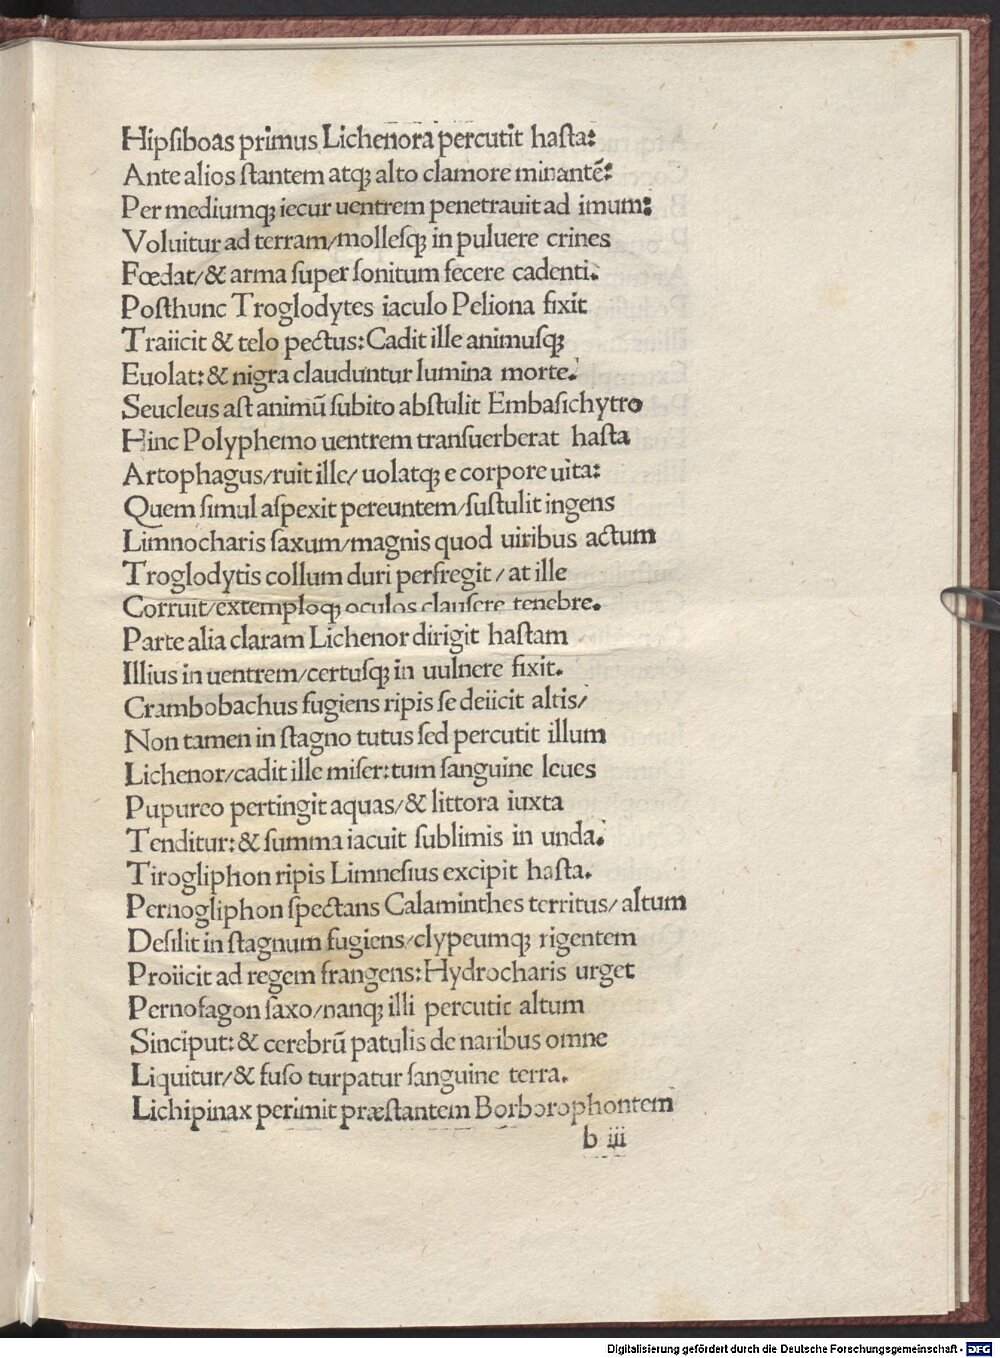 Hipſiboas primus Lichenora percutit haſta:
Ante alios ſtantem atqꝫ alto clamore minantē:
Per mediumqꝫ iecur uentrem penetrauit ad imum:
Voluitur ad terram/molleſqꝫ in puluere crines
Fœdat/& arma ſuper ſonitum fecere cadenti.
Poſthunc Troglodytes iaculo Peliona fixit
Traiicit & telo pectus: Cadit ille animuſqꝫ
Euolat: & nigra clauduntur lumina morte.
Seucleus aſt animū ſubito abſtulit Embaſichytro
Hinc Polyphemo uentrem tranſuerberat haſta
Artophagus/ruit ille/ uolatqꝫ e corpore uita:
Quem ſimul aſpexit pereuntem/ſuſtulit ingens
Limnocharis ſaxum/magnis quod uiribus actum
Troglodytis collum duri perfregit/at ille
Corruit/extemploqꝫ oculos clauſere tenebre.
Parte alia claram Lichenor dirigit haſtam
Illius in uentrem/certuſqꝫ in uulnere fixit.
Crambobachus fugiens ripis ſe deiicit altis/
Non tamen in ſtagno tutus ſed percutit illum
Lichenor/cadit ille miſer: tum ſanguine leues
Pupureo pertingit aquas/& littora iuxta
Tenditur: & ſumma iacuit ſublimis in unda.
Tirogliphon ripis Limneſius excipit haſta.
Pernogliphon ſpectans Calaminthes territus/altum
Deſilit in ſtagnum fugiens/clypeumqꝫ rigentem
Proiicit ad regem frangens: Hydrocharis urget
Pernofagon ſaxo/nanqꝫ illi percutit altum
Sinciput: & cerebrū patulis de naribus omne
Liquitur/& fuſo turpatur ſanguine terra.
Lichipinax perimit præſtantem Borborophontem
b iii
Digitalisierung gefördert durch die Deutsche Forschungsgemeinschaft - DFG